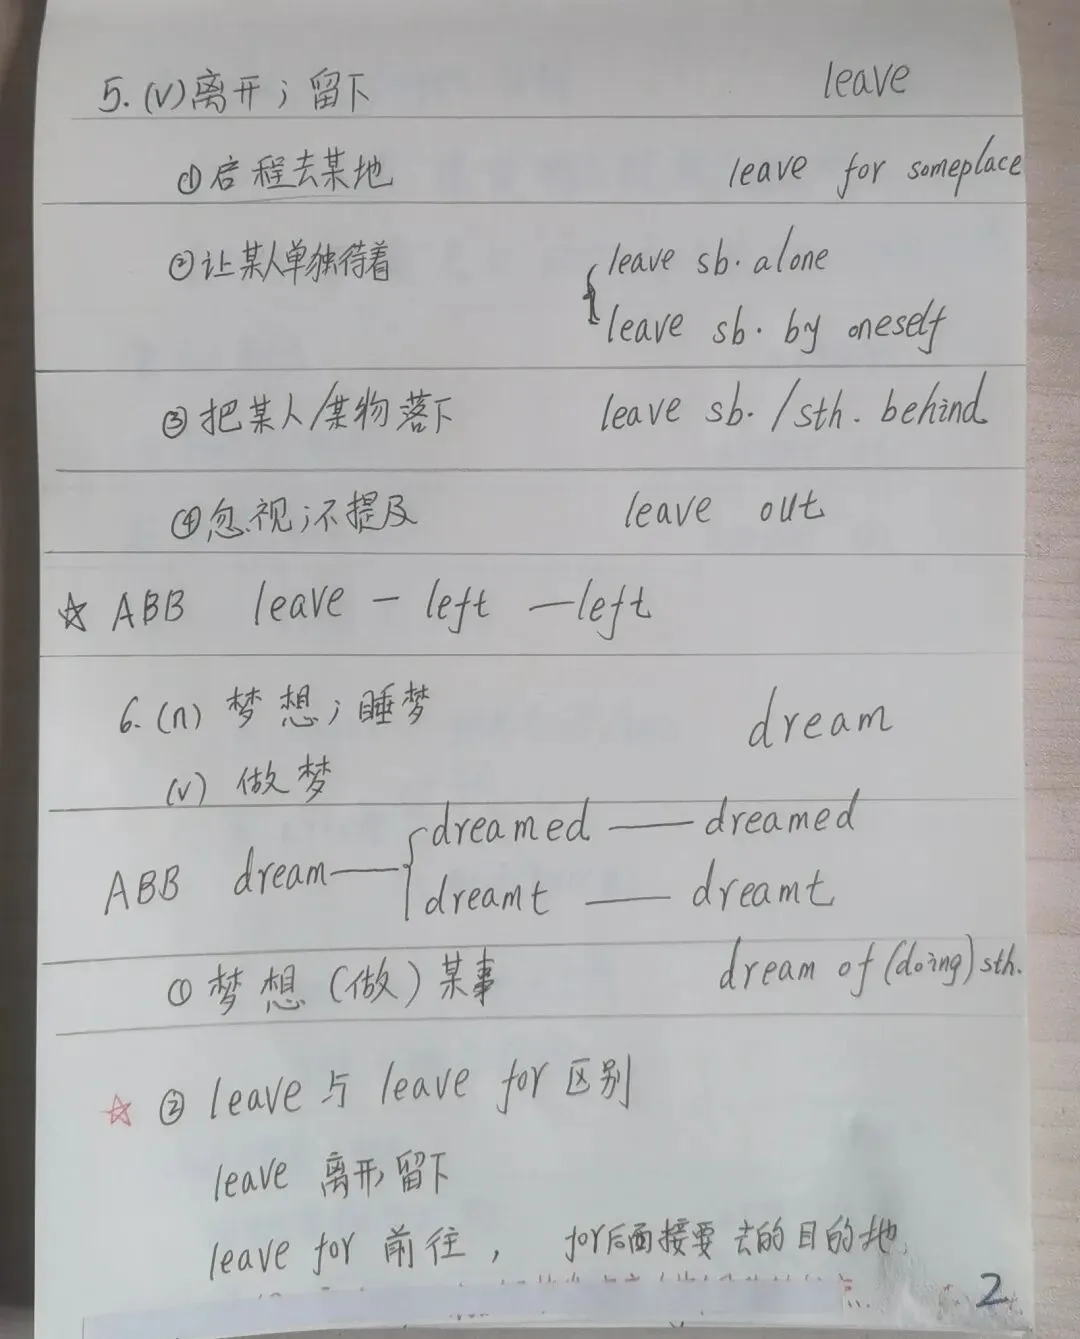 5. (v) 离开；留下 leave
①启程去某地 leave for someplace
②让某人单独待着 leave sb. alone
leave sb. by oneself
③把某人/某物落下 leave sb. /sth. behind
④忽视；不提及 leave out
☆ ABB leave - left - left
6. (n) 梦想；睡梦 dream
(v) 做梦
dreamed — dreamed
ABB dream —
dreamt — dreamt
①梦想(做)某事 dream of (doing) sth.
☆ ② leave 与 leave for 区别
leave 离开，留下
leave for 前往， for后面接要去的目的地.
2